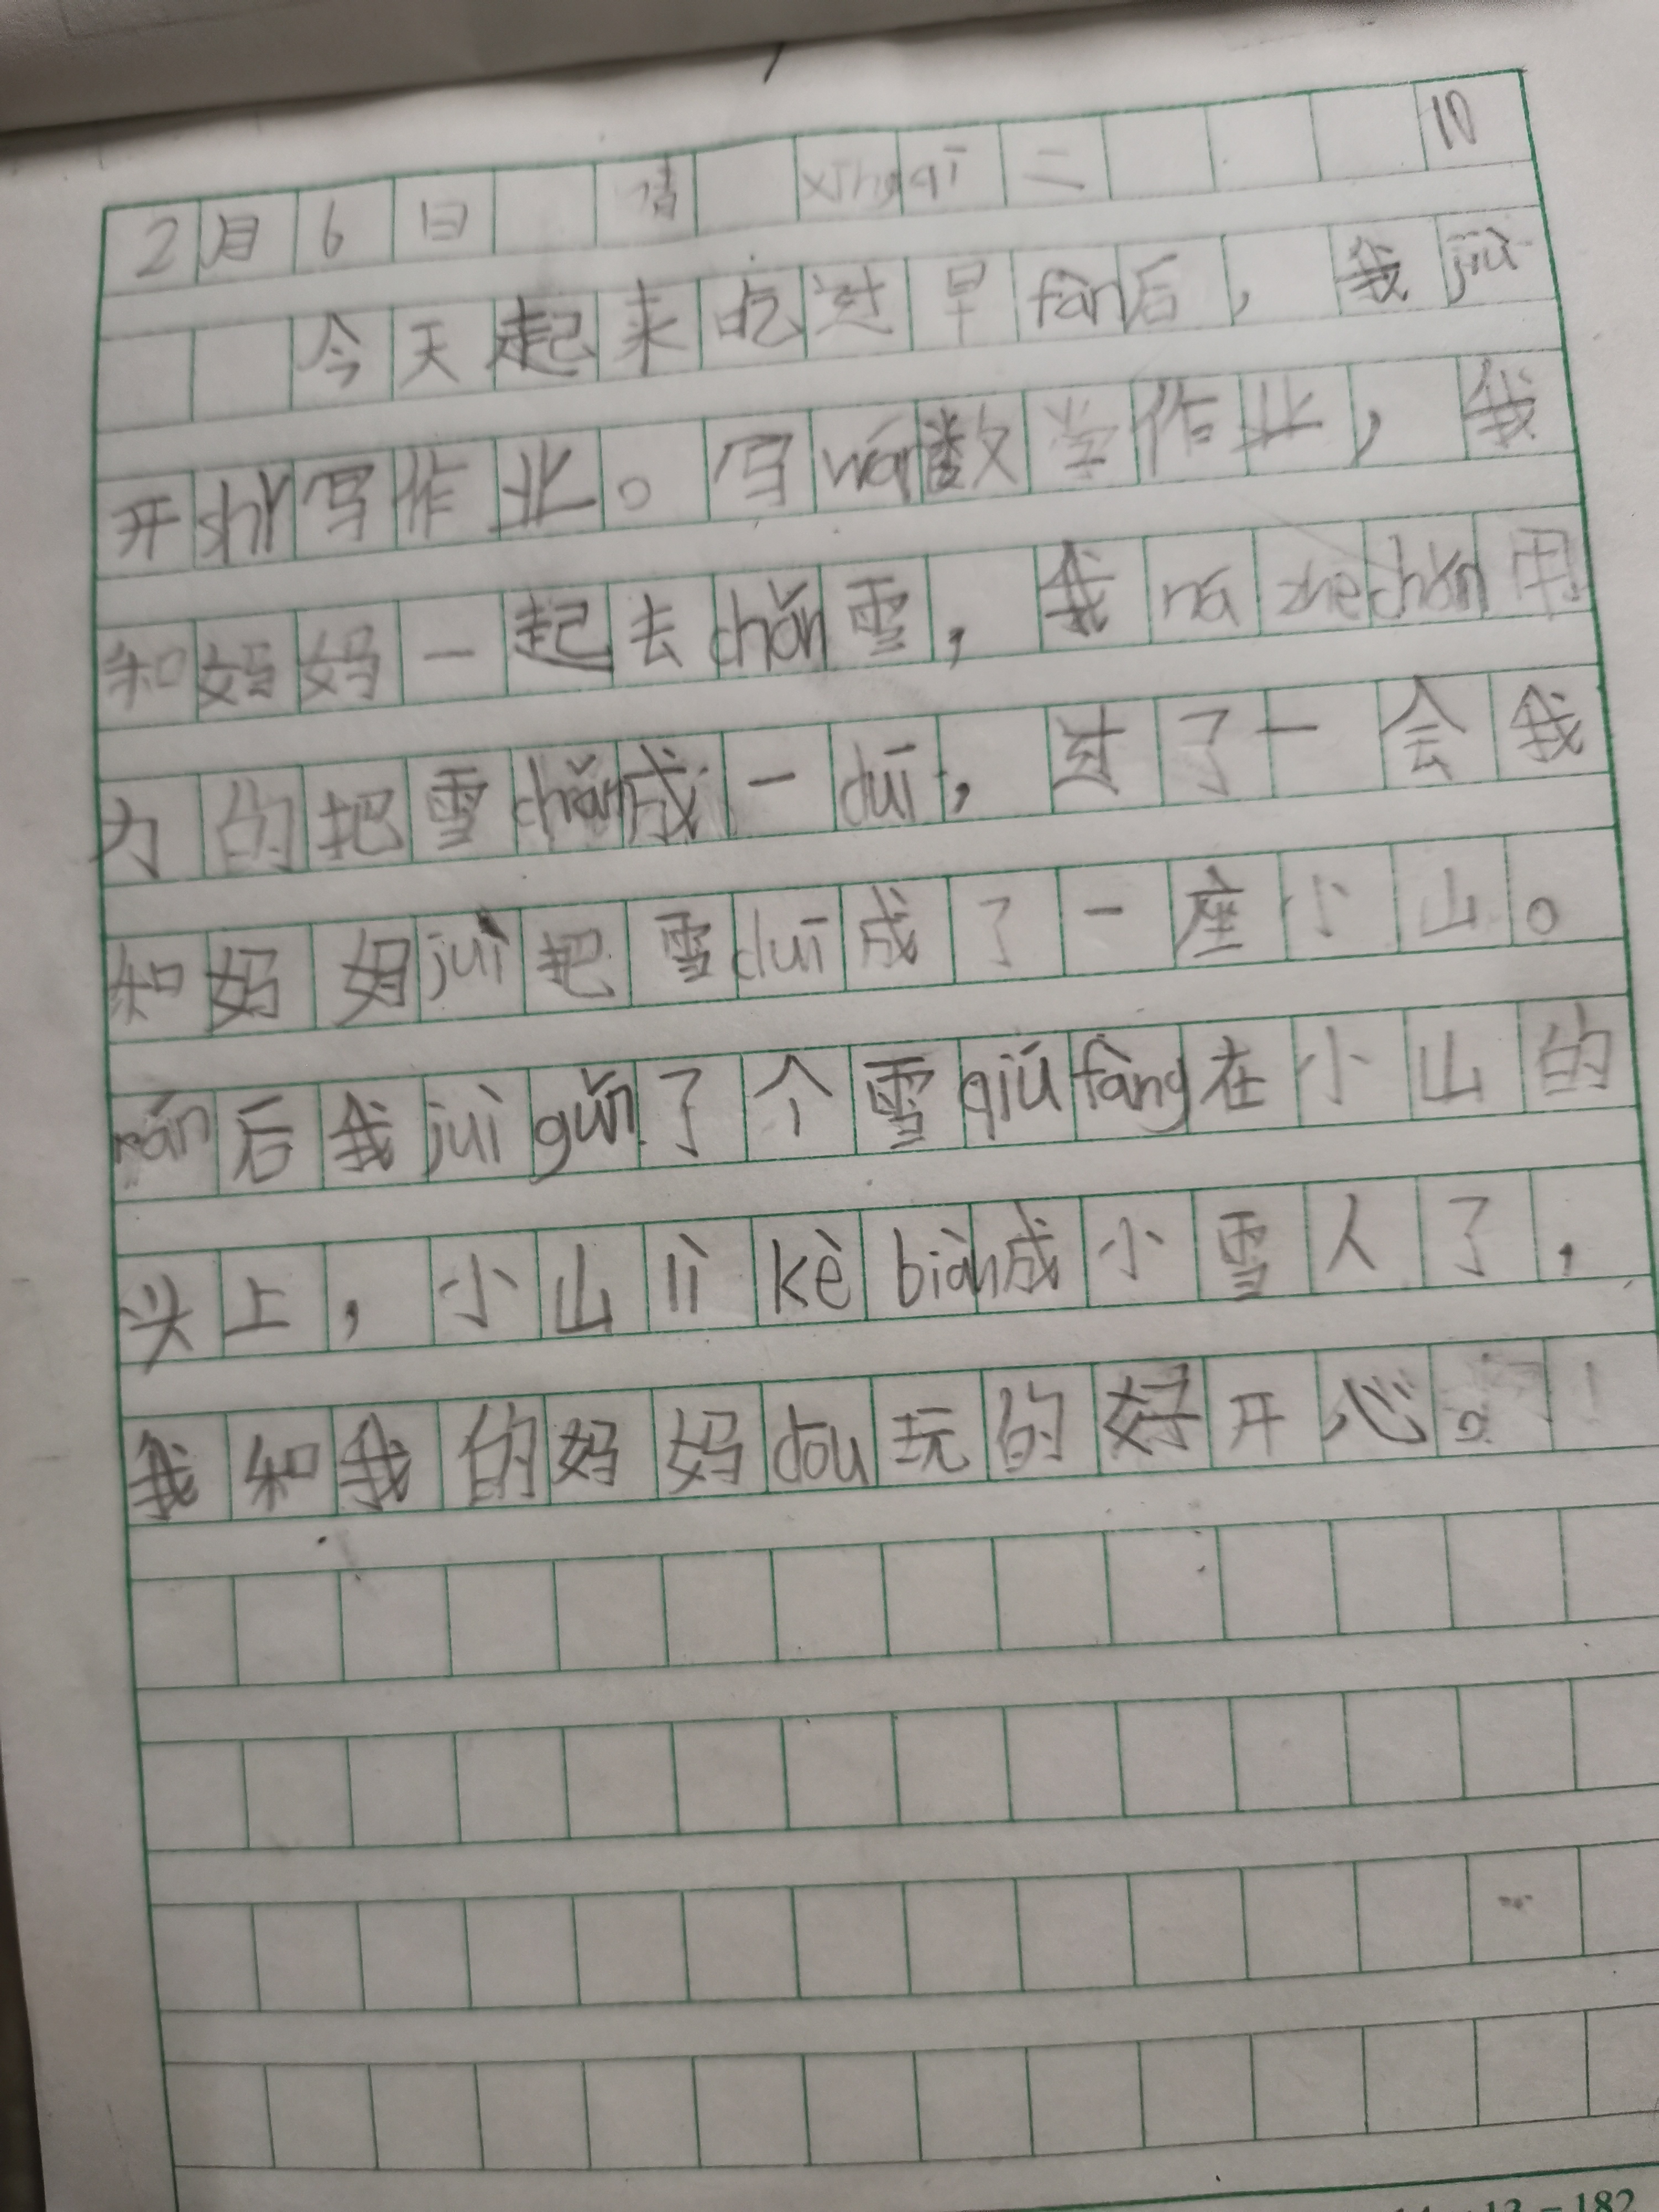 10
2月6日 晴 xīng qī 二
今天起来吃过早fàn后，我jiù
开shǐ写作业。写wán数学作业，我
和妈妈一起去chǎn雪，我ná zhe chǎn用
力的把雪chǎn成一duī，过了一会我
和妈妈juì把雪duī成了一座小山。
rán后我juì gǔn了个雪qiú fàng在小山的
头上，小山lì kè biàn成小雪人了，
我和我的妈妈dōu玩的好开心。
13 = 182